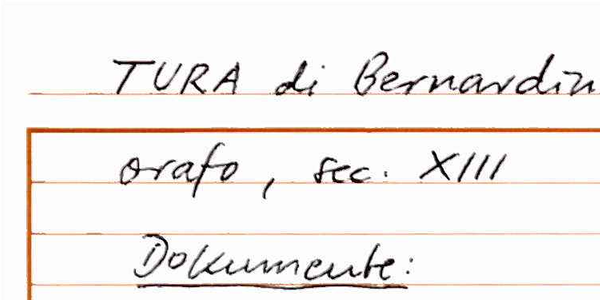 TURA di Bernardin
orafo, sec. XIII
Dokumente: